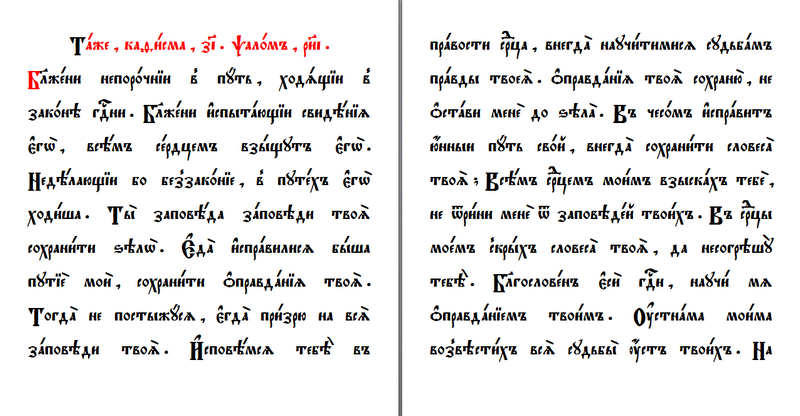 Та́же , каѳи́сма , з҃і . Ѱало́мъ , ри҃і .
Бл҃же́ни непоро́чнїи в̾ пꙋ́ть , ходѧ́щїи в̾
зако́нѣ гдⷭ҇ни . Бл҃же́ни и҆спыта́ющїи свидѣ́нїѧ
є҆гѡ̀ , всѣ́мъ се́рдцемъ взы́щꙋтъ є҆гѡ̀ .
Недѣ́лающїи бо без̾зако́нїе , в̾ пꙋте́хъ є҆гѡ̀
ходи́ша . Ты̀ заповѣ́да за́повѣди твоѧ̀
сохрани́ти ѕѣлѡ̀ . Є҆да̀ и҆спра́вилисѧ бы́ша
пꙋтїѐ моѝ , сохрани́ти ѡ҆правда́нїѧ твоѧ̀ .
Тогда̀ не постыжꙋ́сѧ , є҆гда̀ при́зрю на всѧ̀
за́повѣди твоѧ̀ . И҆сповѣ́мсѧ тебѣ̀ въ
пра́вости срⷣца , внегда̀ наꙋчи́тимисѧ сꙋдьба́мъ
пра́вды твоеѧ̀ . Ѡ҆правда́нїѧ твоѧ̀ сохраню̀ , не
ѡ҆ста́ви менѐ до ѕѣла̀ . Въ чесо́мъ и҆спра́витъ
ю҆́нныи пꙋть сво́й , внегда̀ сохрани́ти словеса̀
твоѧ̀ ; Всѣ́мъ срⷣцемъ мои́мъ взыска́хъ тебѐ ,
не ѿри́ни менѐ ѿ заповѣде́й твои́хъ . Въ срⷣцы
мое́мъ скры́хъ словеса̀ твоѧ̀ , да несогрѣшꙋ̀
тебѣ̀ . Бл҃гослове́нъ є҆сѝ гдⷭ҇и , наꙋчи́ мѧ
ѡ҆правда́нїемъ твои́мъ . Оу҆стна́ма мои́ма
возвѣсти́хъ всѧ̀ сꙋдьбы̀ оу҆́стъ твои́хъ . На